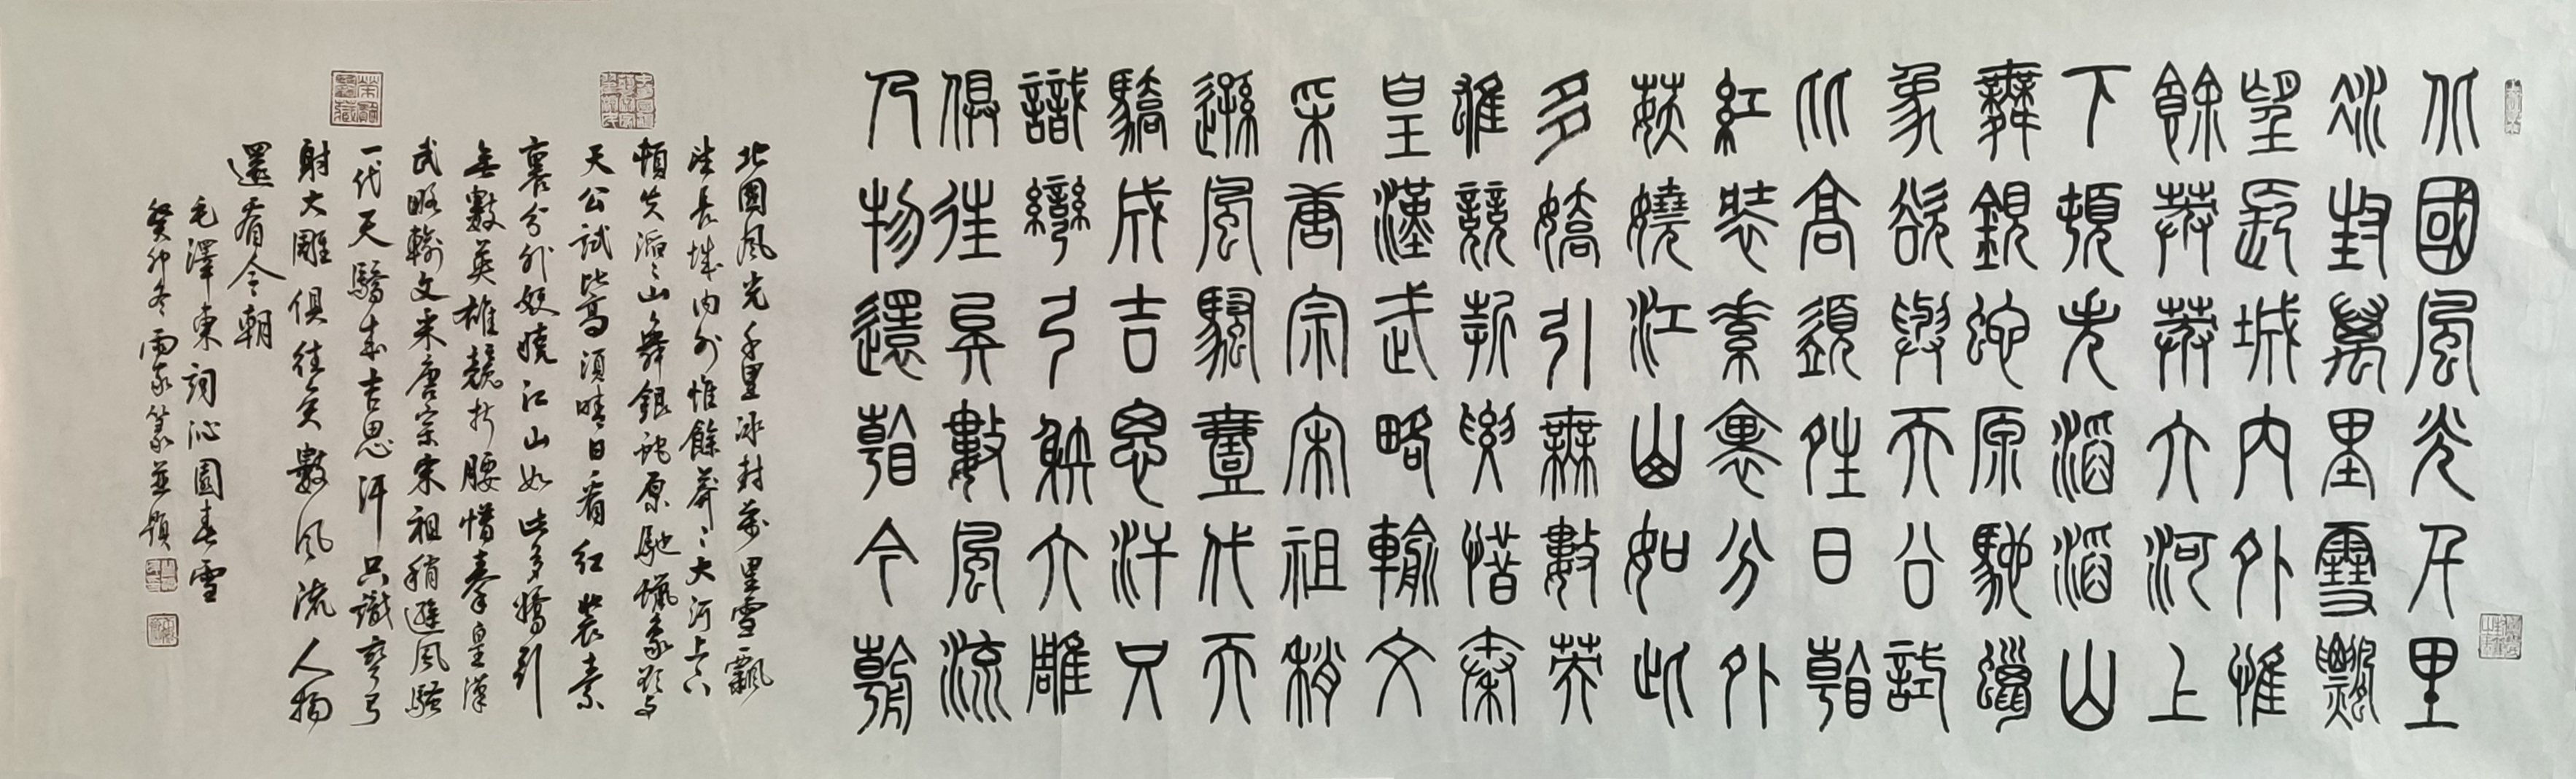 北國風光千里
冰封萬里雪飄
望長城內外惟
餘莽莽大河上
下頓失滔滔山
舞銀蛇原馳蠟
象欲與天公試
比高須晴日看
紅裝素裹分外
妖嬈江山如此
多嬌引無數英
雄競折腰惜秦
皇漢武略輸文
采唐宗宋祖稍
遜風騷壹代天
驕成吉思汗只
識彎弓射大雕
俱往矣數風流
人物還看今朝
北國風光千里冰封萬里雪飄
望長城內外惟餘莽〻大河上下
頓失滔〻山舞銀蛇原馳蠟象欲與
天公試比高須晴日看紅裝素
裹分外妖嬈江山如此多嬌引
無數英雄競折腰惜秦皇漢
武略輸文采唐宗宋祖稍遜風騷
一代天驕成吉思汗只識彎弓
射大雕俱往矣數風流人物
還看今朝
毛澤東詞沁園春雪
癸卯冬雨家篆並題